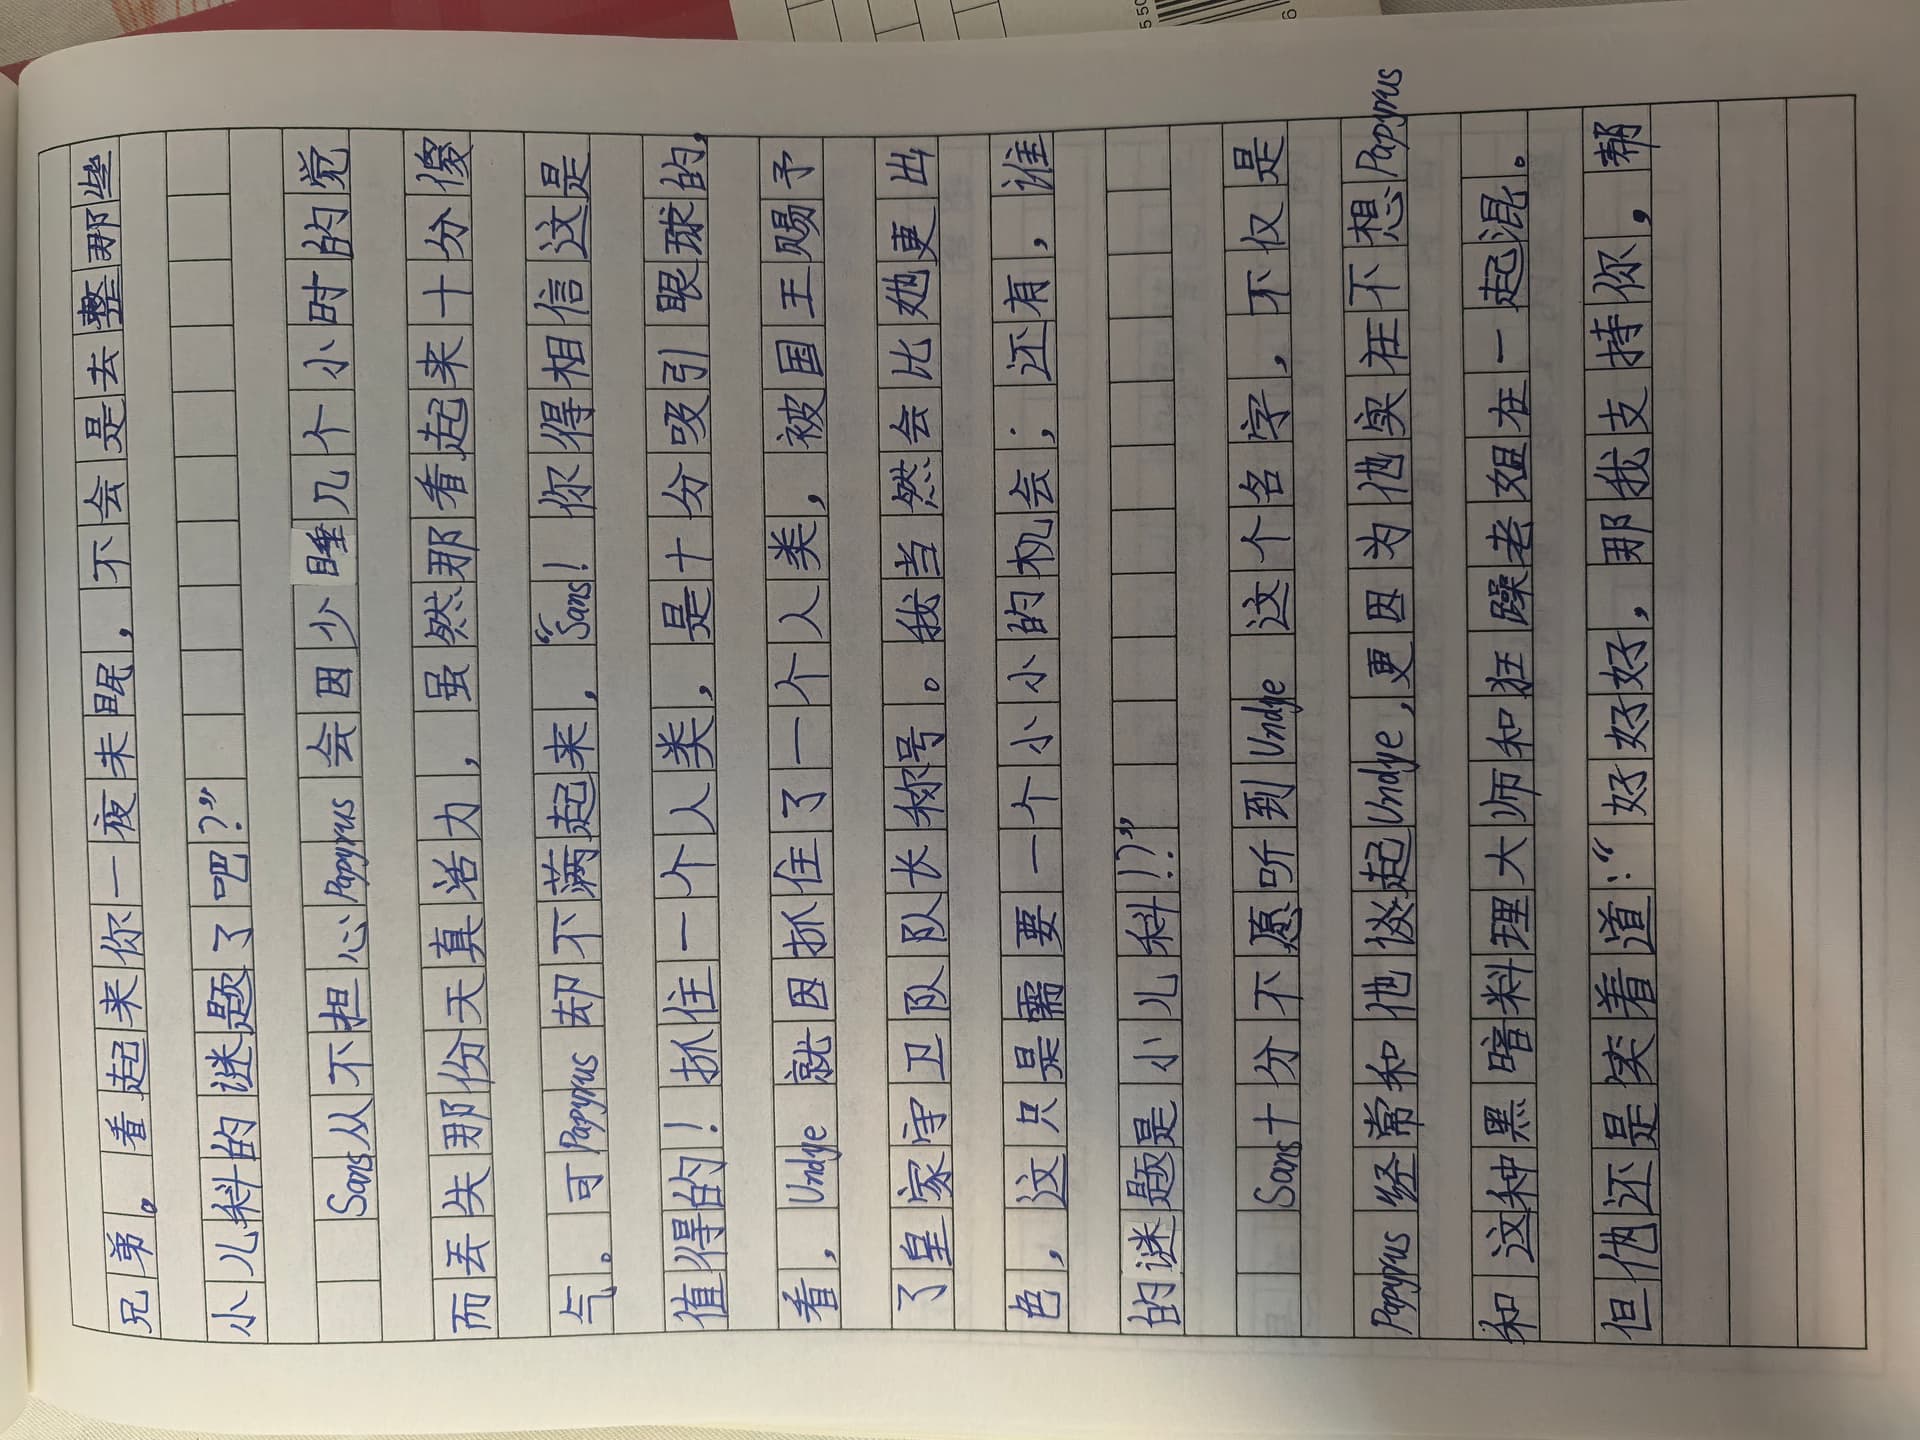 兄弟。看起来你一夜未眠，不会是去整那些
小儿科的谜题了吧？”
Sans从不担心Papyrus会因少睡几个小时的觉
而丢失那份天真活力，虽然那看起来十分傻
气。可Papyrus却不满起来，“Sans！你得相信这是
值得的！抓住一个人类，是十分吸引眼球的，
看，Undye就因抓住了一个人类，被国王赐予
了皇家守卫队队长称号。我当然会比她更出
色，这只是需要一个小小的机会；还有，谁
的谜题是小儿科！？”
Sans十分不愿听到Undye这个名字，不仅是
Papyrus经常和他谈起Undye，更因为他实在不想Papyrus
和这种黑暗料理大师和狂躁老姐在一起混。
但他还是笑着道：“好好好，那我支持你，帮
550
6